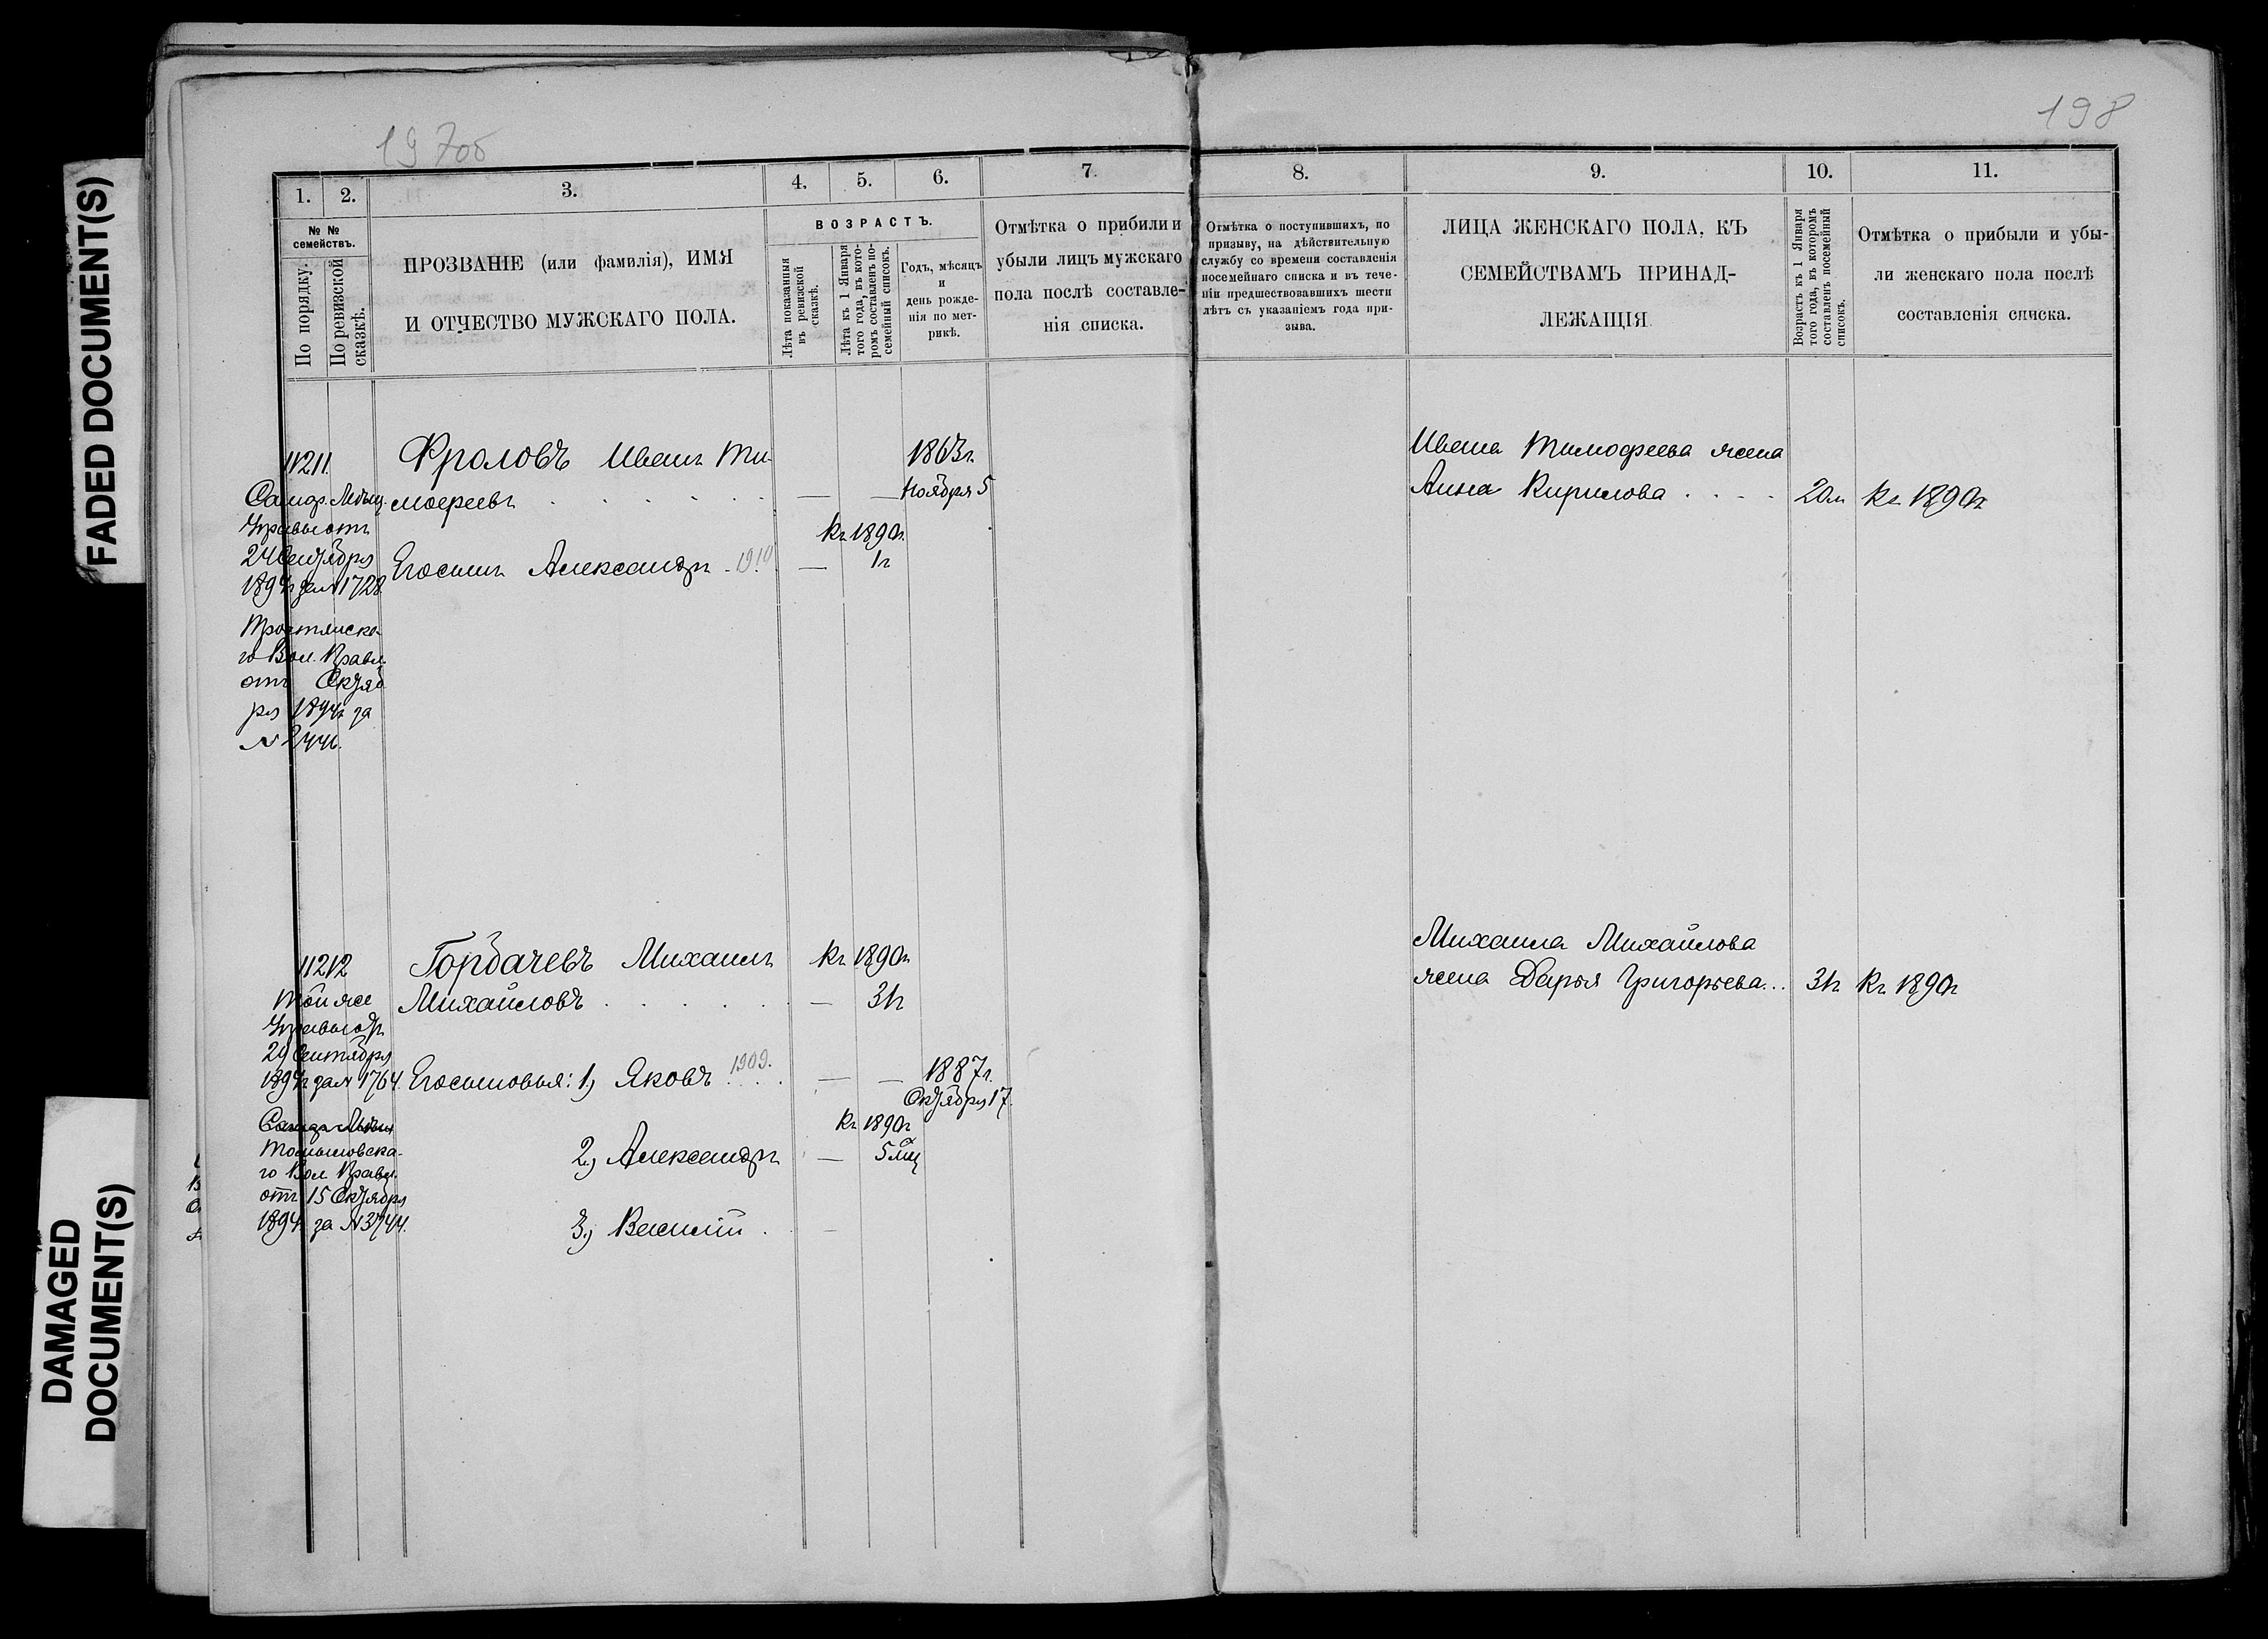 FADED DOCUMENT(S)
DAMAGED
DOCUMENT(S)
197об
198
1.
2.
3.
4.
5.
6.
7.
№ №
семействъ.
По порядку.
По ревизской
сказкѣ.
ПРОЗВАНІЕ (или фамилія), ИМЯ
И ОТЧЕСТВО МУЖСКАГО ПОЛА.
ВОЗРАСТЪ.
Лѣта показанныя
въ ревизской
сказкѣ.
Лѣта къ 1 Января
того года, въ кото-
ромъ составленъ по-
семейный списокъ.
Годъ, мѣсяцъ
и
день рожде-
нія по мет-
рикѣ.
Отмѣтка о прибыли и
убыли лицъ мужскаго
пола послѣ составле-
нія списка.
8.
9.
10.
11.
Отмѣтка о поступившихъ, по
призыву, на дѣйствительную
службу со времени составленія
посемейнаго списка и въ тече-
ніи предшествовавшихъ шести
лѣтъ съ указаніемъ года при-
зыва.
ЛИЦА ЖЕНСКАГО ПОЛА, КЪ
СЕМЕЙСТВАМЪ ПРИНАД-
ЛЕЖАЩІЯ
Возрастъ къ 1 Января
того года, въ которомъ
составленъ посемейный
списокъ.
Отмѣтка о прибыли и убы-
ли женскаго пола послѣ
составленія списка.
11211.
Управы отъ
24 Сентября
1894г за № 1728
го Вол. Правл.
отъ Октяб
ря 1894г за
Фроловъ Иванъ Ти-
мофеевъ
1863г.
Ноября 5
Его сынъ Александръ 1910
Къ 1890г.
1г
Ивана Тимофеева жена
Анна Кирилова
20л
Къ 1890г
11212
Той же
Управы отъ
29 Сентября
1894г за № 1764.
го Вол. Правл.
отъ 15 Октября
1894г за № 3744.
Горбачевъ Михаилъ
Михайловъ
Къ 1890г
31г
Его сыновья: 1, Яковъ 1909.
1887г.
Октября 17.
2, Александръ
Къ 1890г
5 мц
3, Василій
Михаила Михайлова
жена Дарья Григорьева...
31г
Къ 1890г